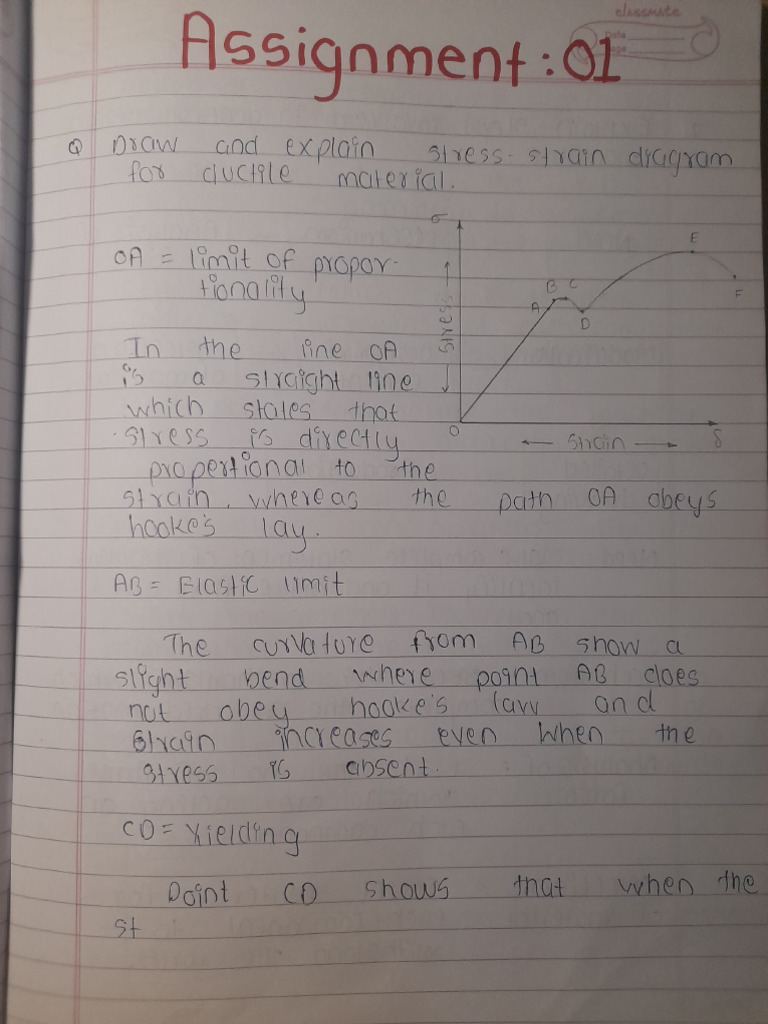 classmate
Date
Page
Assignment : 01
Q Draw and explain stress-strain diagram
for ductile material.
σ
OA = limit of propor-
tionality
E
B C
A
F
D
← stress →
O
← Strain →
δ
In the line OA
is a straight line
which states that
stress is directly
propertional to the
strain. whereas the path OA obeys
hooke's lay.
AB = Elastic limit
The curvature from AB show a
slight bend where point AB does
not obey hooke's law and
Strain increases even when the
stress is absent.
CD = Yielding
Point CD shows that when the
st